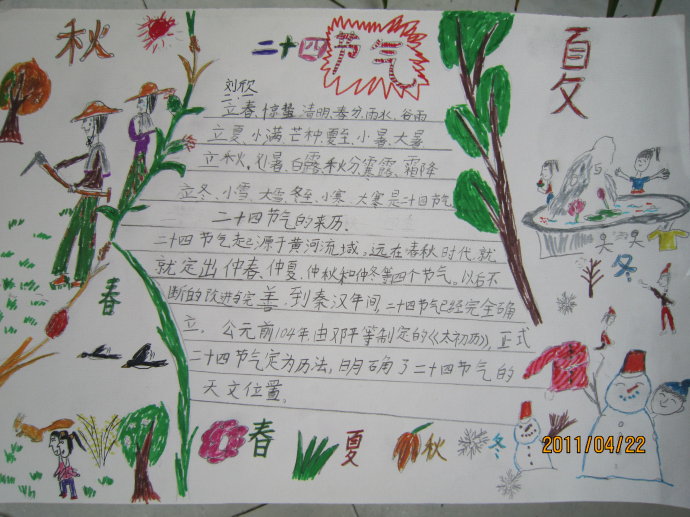 秋
二十四节气
夏
刘欣
立春、惊蛰、清明、春分、雨水、谷雨
立夏、小满、芒种、夏至、小暑、大暑
立秋、处暑、白露、秋分、寒露、霜降
立冬、小雪、大雪、冬至、小寒、大寒是二十四节气。
二十四节气的来历.
二十四节气起源于黄河流域,远在春秋时代,就
就定出仲春、仲夏、仲秋和仲冬等四个节气。以后不
断的改进与完善,到秦汉年间,二十四节气已经完全确
立。公元前104年,由邓平等制定的《太初历》,正式
二十四节气定为历法,明确了二十四节气的
天文位置。
春
冬
春 夏 秋 冬
2011/04/22